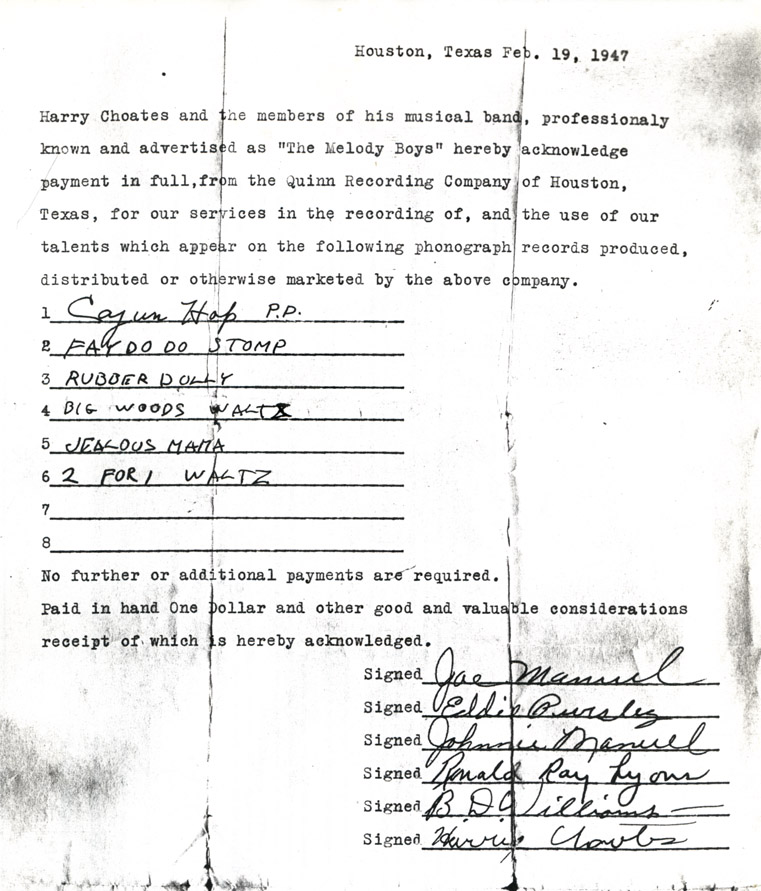 Houston, Texas Feb. 19, 1947
Harry Choates and the members of his musical band, professionaly
known and advertised as "The Melody Boys" hereby acknowledge
payment in full,from the Quinn Recording Company of Houston,
Texas, for our services in the recording of, and the use of our
talents which appear on the following phonograph records produced,
distributed or otherwise marketed by the above company.
1 Cajun Hop P.D.
2 FAY DO DO STOMP
3 RUBBER DOLLY
4 BIG WOODS WALTZ
5 JEALOUS MAMA
6 2 FOR 1 WALTZ
7
8
No further or additional payments are required.
Paid in hand One Dollar and other good and valuable considerations
receipt of which is hereby acknowledged.
Signed Joe Manuel
Signed Eddie Pursley
Signed Johnnie Manuel
Signed Ronald Ray Lyons
Signed B D Williams
Signed Harris Choates